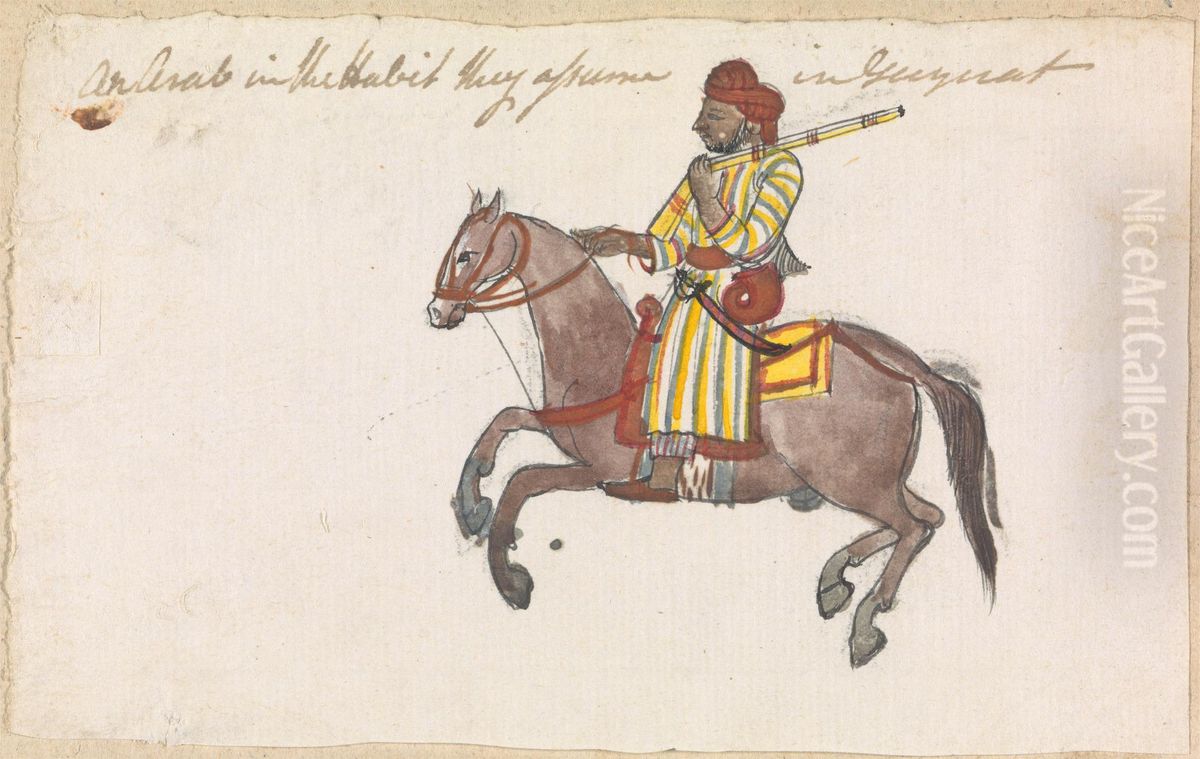 An Arab in the Habit they assume in Guzurat
NiceArtGallery.com